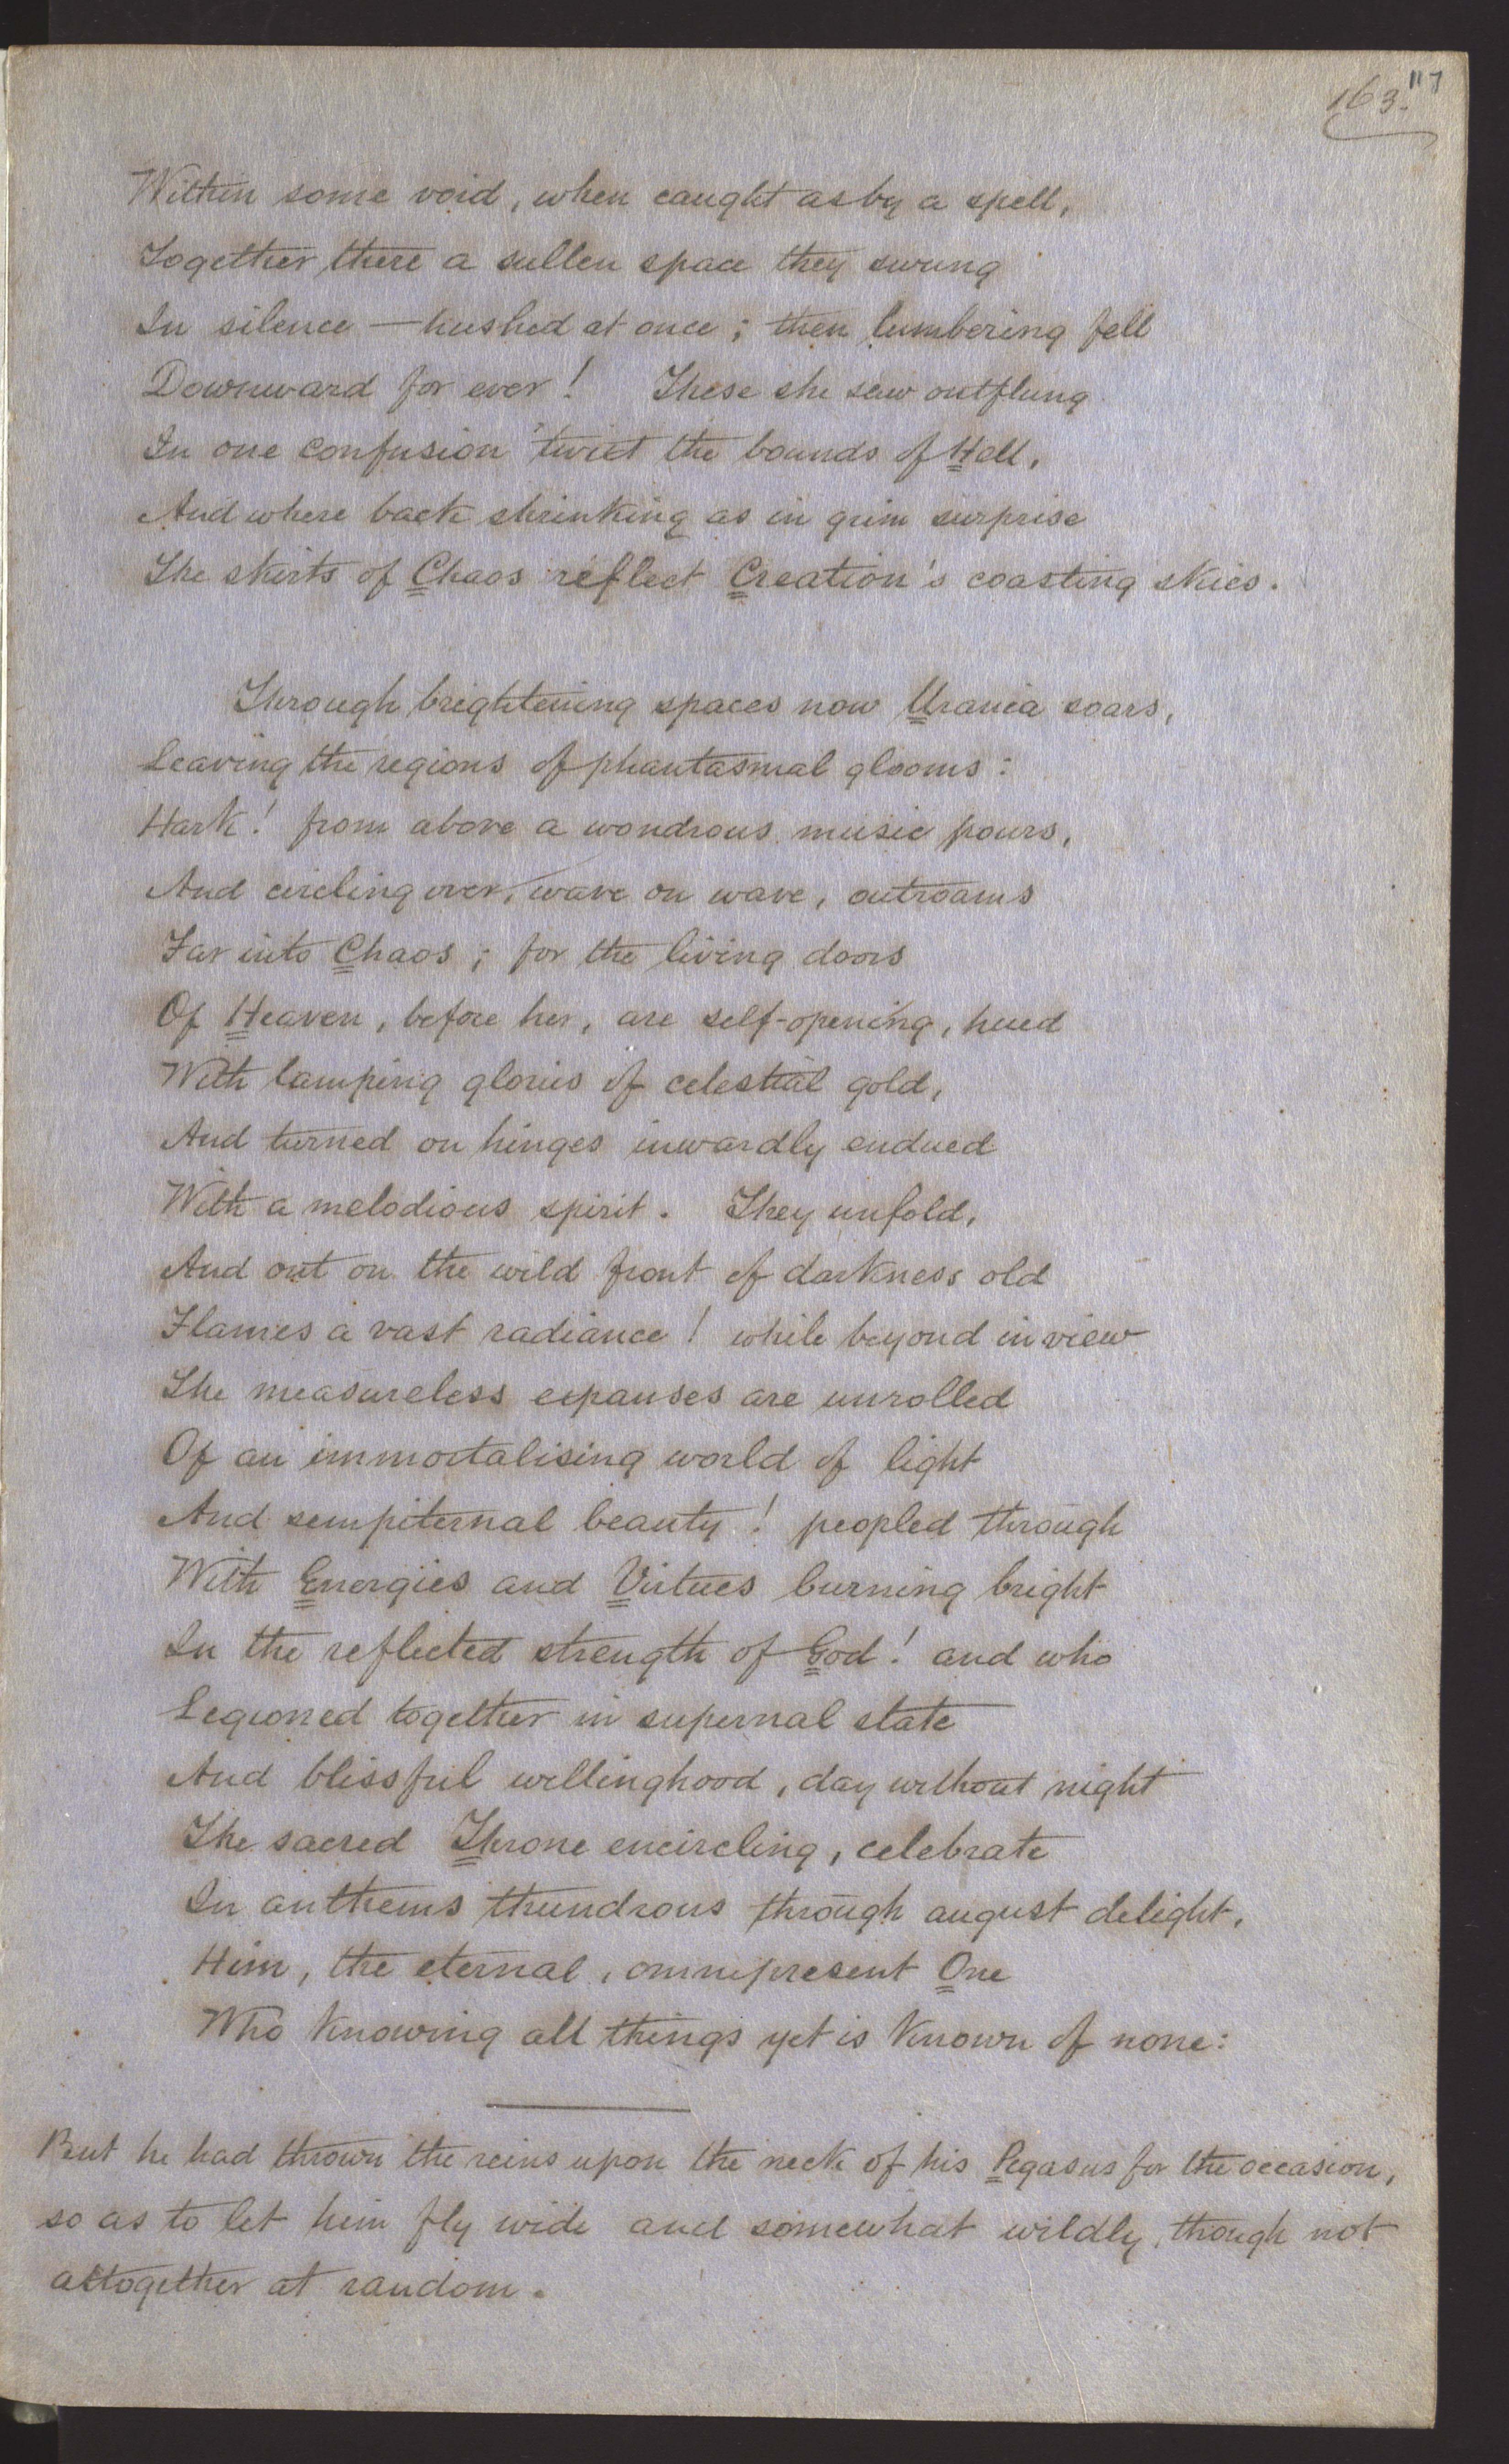 163.
117
Within some void, when caught as by a spell,
Together, there a sullen space they swung
In silence — hushed at once; then lumbering fell
Downward for ever! These she saw outflung
In one confusion 'twixt the bounds of Hell,
And where back shrinking as in grim surprise
The skirts of Chaos reflect Creation's coasting skies.
Through brightening spaces now Urania soars,
Leaving the regions of phantasmal glooms:
Hark! from above a wondrous music pours,
And circling over, wave on wave, outroams
Far into Chaos; for the living doors
Of Heaven, before her, are self-opening, hued
With lamping glories of celestial gold,
And turned on hinges inwardly endued
With a melodious spirit. They unfold,
And out on the wild front of darkness old
Flames a vast radiance! while beyond in view
The measureless expanses are unrolled
Of an immortalising world of light
And sempiternal beauty! peopled through
With Energies and Virtues burning bright
In the reflected strength of God! and who
Legioned together in supernal state
And blissful willinghood, day without night
The sacred Throne encircling, celebrate
In anthems thundrous through august delight,
Him, the eternal, omnipresent One
Who knowing all things yet is known of none:
But he had thrown the reins upon the neck of his Pegasus for the occasion,
so as to let him fly wide and somewhat wildly, though not
altogether at random.